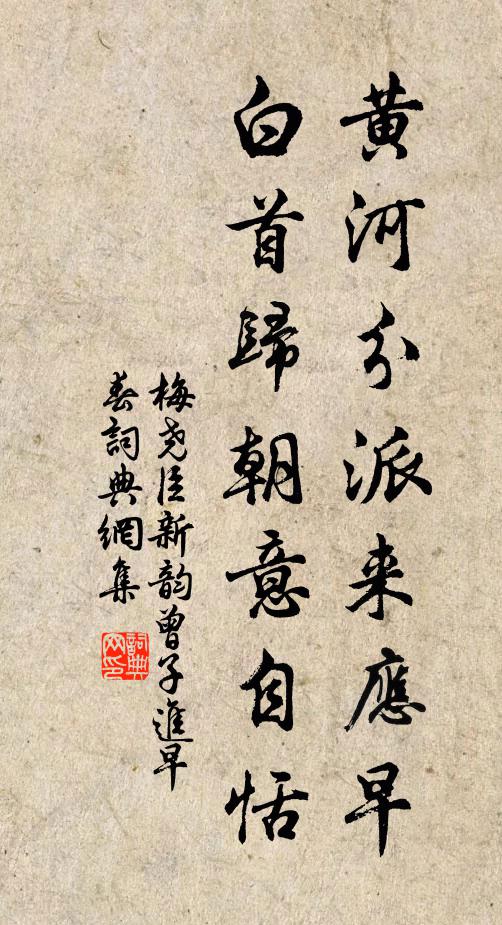 黄河分派来應早
白首歸朝意自恬
梅尧臣新韵曾子進早
春詞典網集
詞典网印